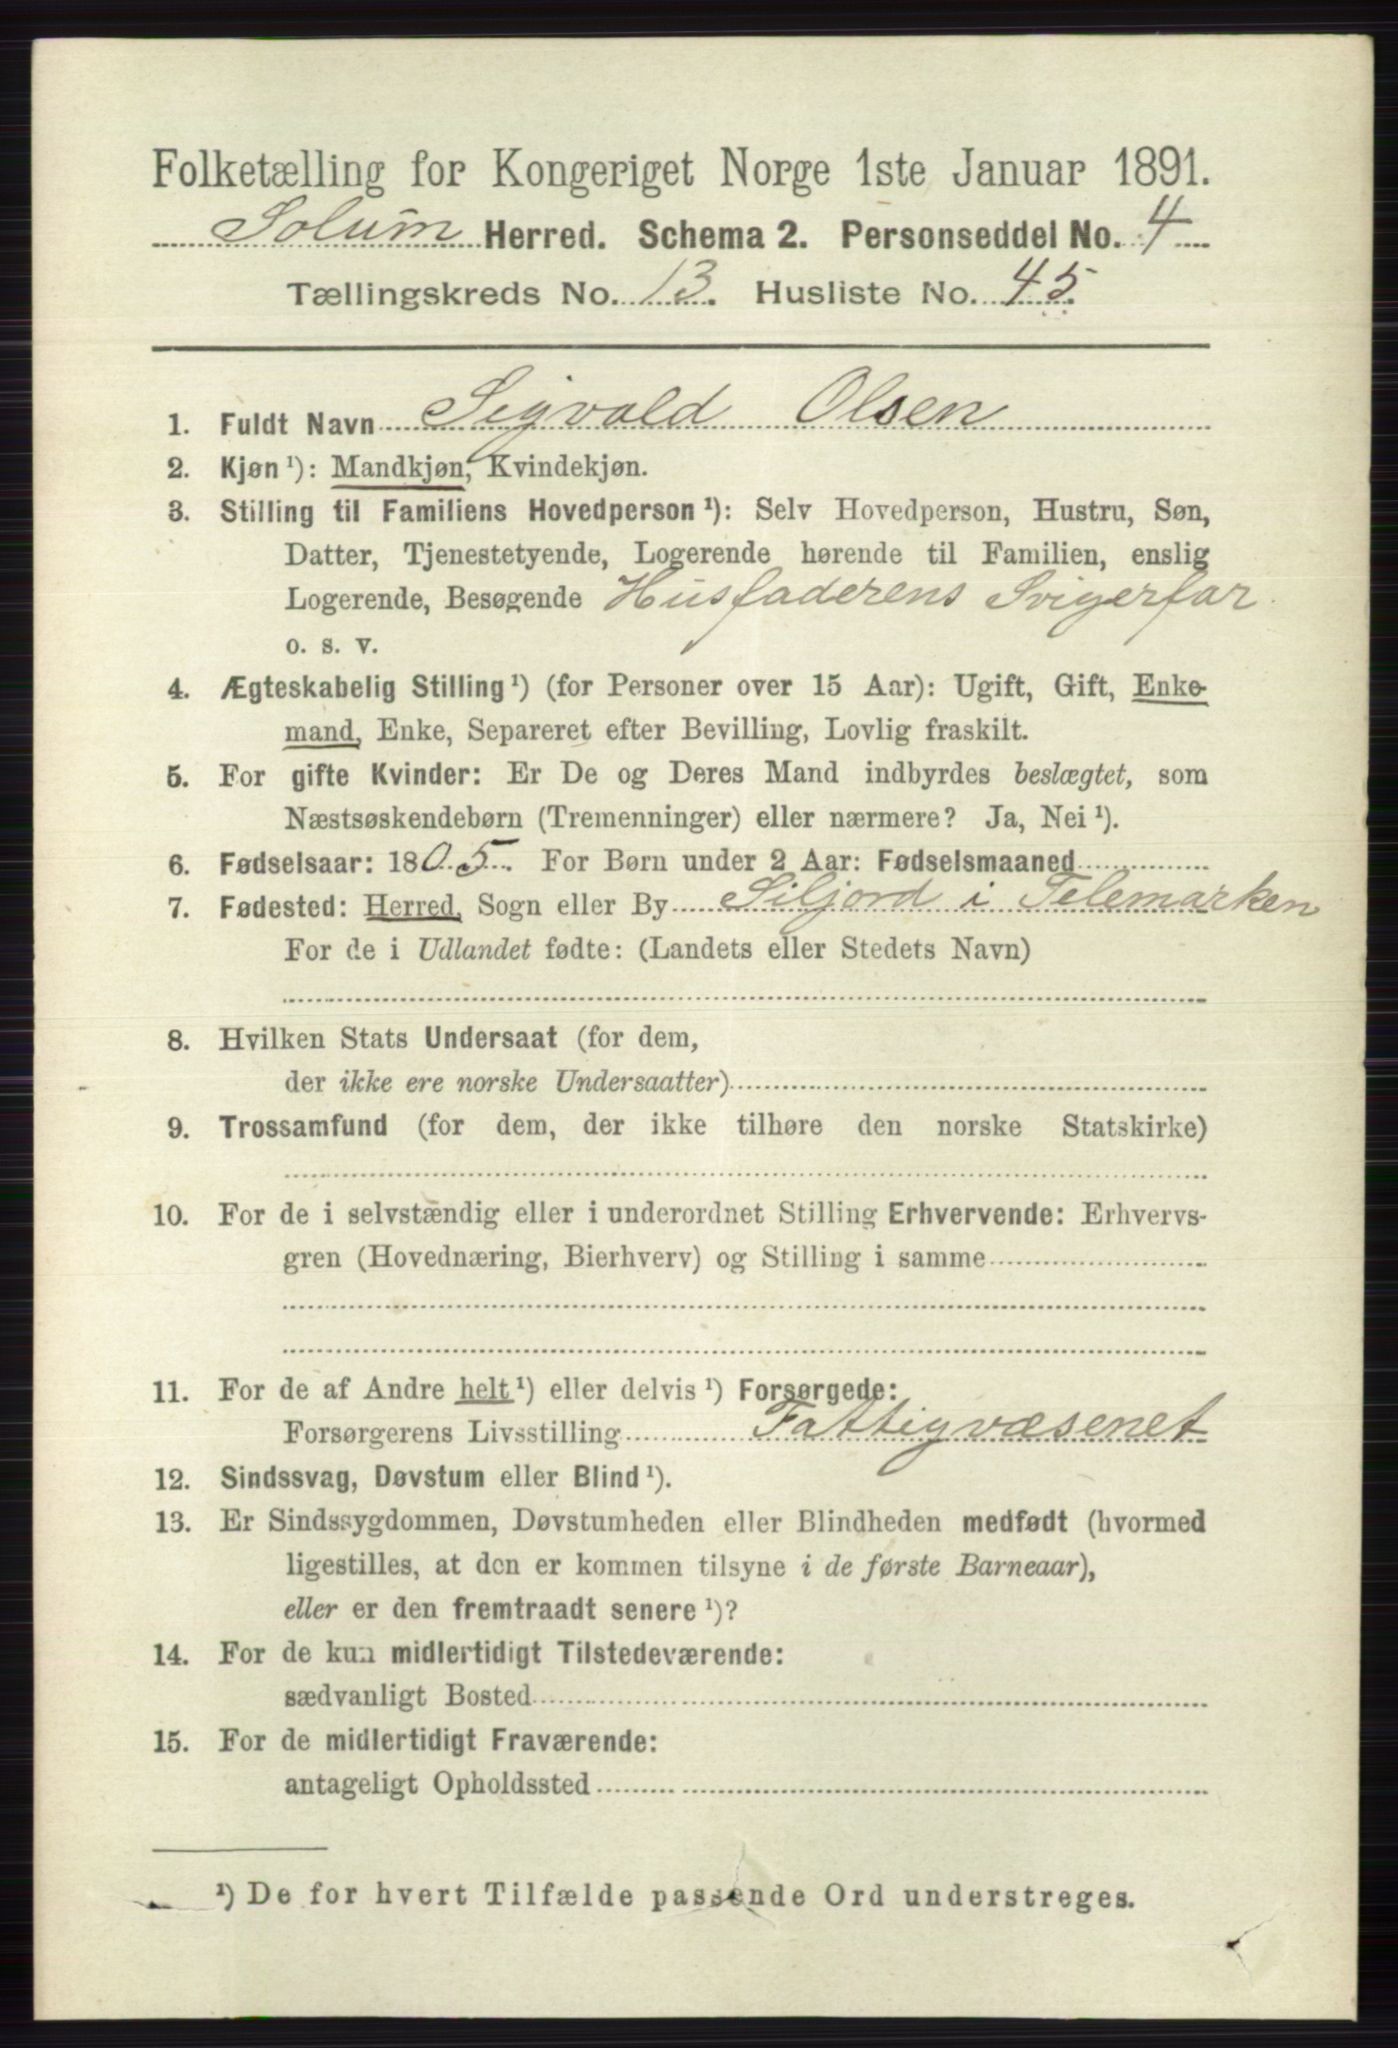 Folketælling for Kongeriget Norge 1ste Januar 1891.
Solum Herred. Schema 2. Personseddel No. 4
Tællingskreds No. 13. Husliste No. 45.
1. Fuldt Navn Sigvald Olsen
2. Kjøn ¹): Mandkjøn, Kvindekjøn.
3. Stilling til Familiens Hovedperson ¹): Selv Hovedperson, Hustru, Søn,
Datter, Tjenestetyende, Logerende hørende til Familien, enslig
Logerende, Besøgende Husfaderens Svigerfar.
o. s. v.
4. Ægteskabelig Stilling ¹) (for Personer over 15 Aar): Ugift, Gift, Enke-
mand, Enke, Separeret efter Bevilling, Lovlig fraskilt.
5. For gifte Kvinder: Er De og Deres Mand indbyrdes beslægtet, som
Næstsøskendebørn (Tremenninger) eller nærmere? Ja, Nei ¹).
6. Fødselsaar: 1805. For Børn under 2 Aar: Fødselsmaaned
7. Fødested: Herred, Sogn eller By Siljord i Telemarken
For de i Udlandet fødte: (Landets eller Stedets Navn)
8. Hvilken Stats Undersaat (for dem,
der ikke ere norske Undersaatter)
9. Trossamfund (for dem, der ikke tilhøre den norske Statskirke)
10. For de i selvstændig eller i underordnet Stilling Erhvervende: Erhvervs-
gren (Hovednæring, Bierhverv) og Stilling i samme
11. For de af Andre helt ¹) eller delvis ¹) Forsørgede:
Forsørgerens Livsstilling Fattigvæsenet
12. Sindssvag, Døvstum eller Blind ¹).
13. Er Sindssygdommen, Døvstumheden eller Blindheden medfødt (hvormed
ligestilles, at den er kommen tilsyne i de første Barneaar),
eller er den fremtraadt senere ¹)?
14. For de kun midlertidigt Tilstedeværende:
sædvanligt Bosted
15. For de midlertidigt Fraværende:
antageligt Opholdssted
¹) De for hvert Tilfælde passende Ord understreges.